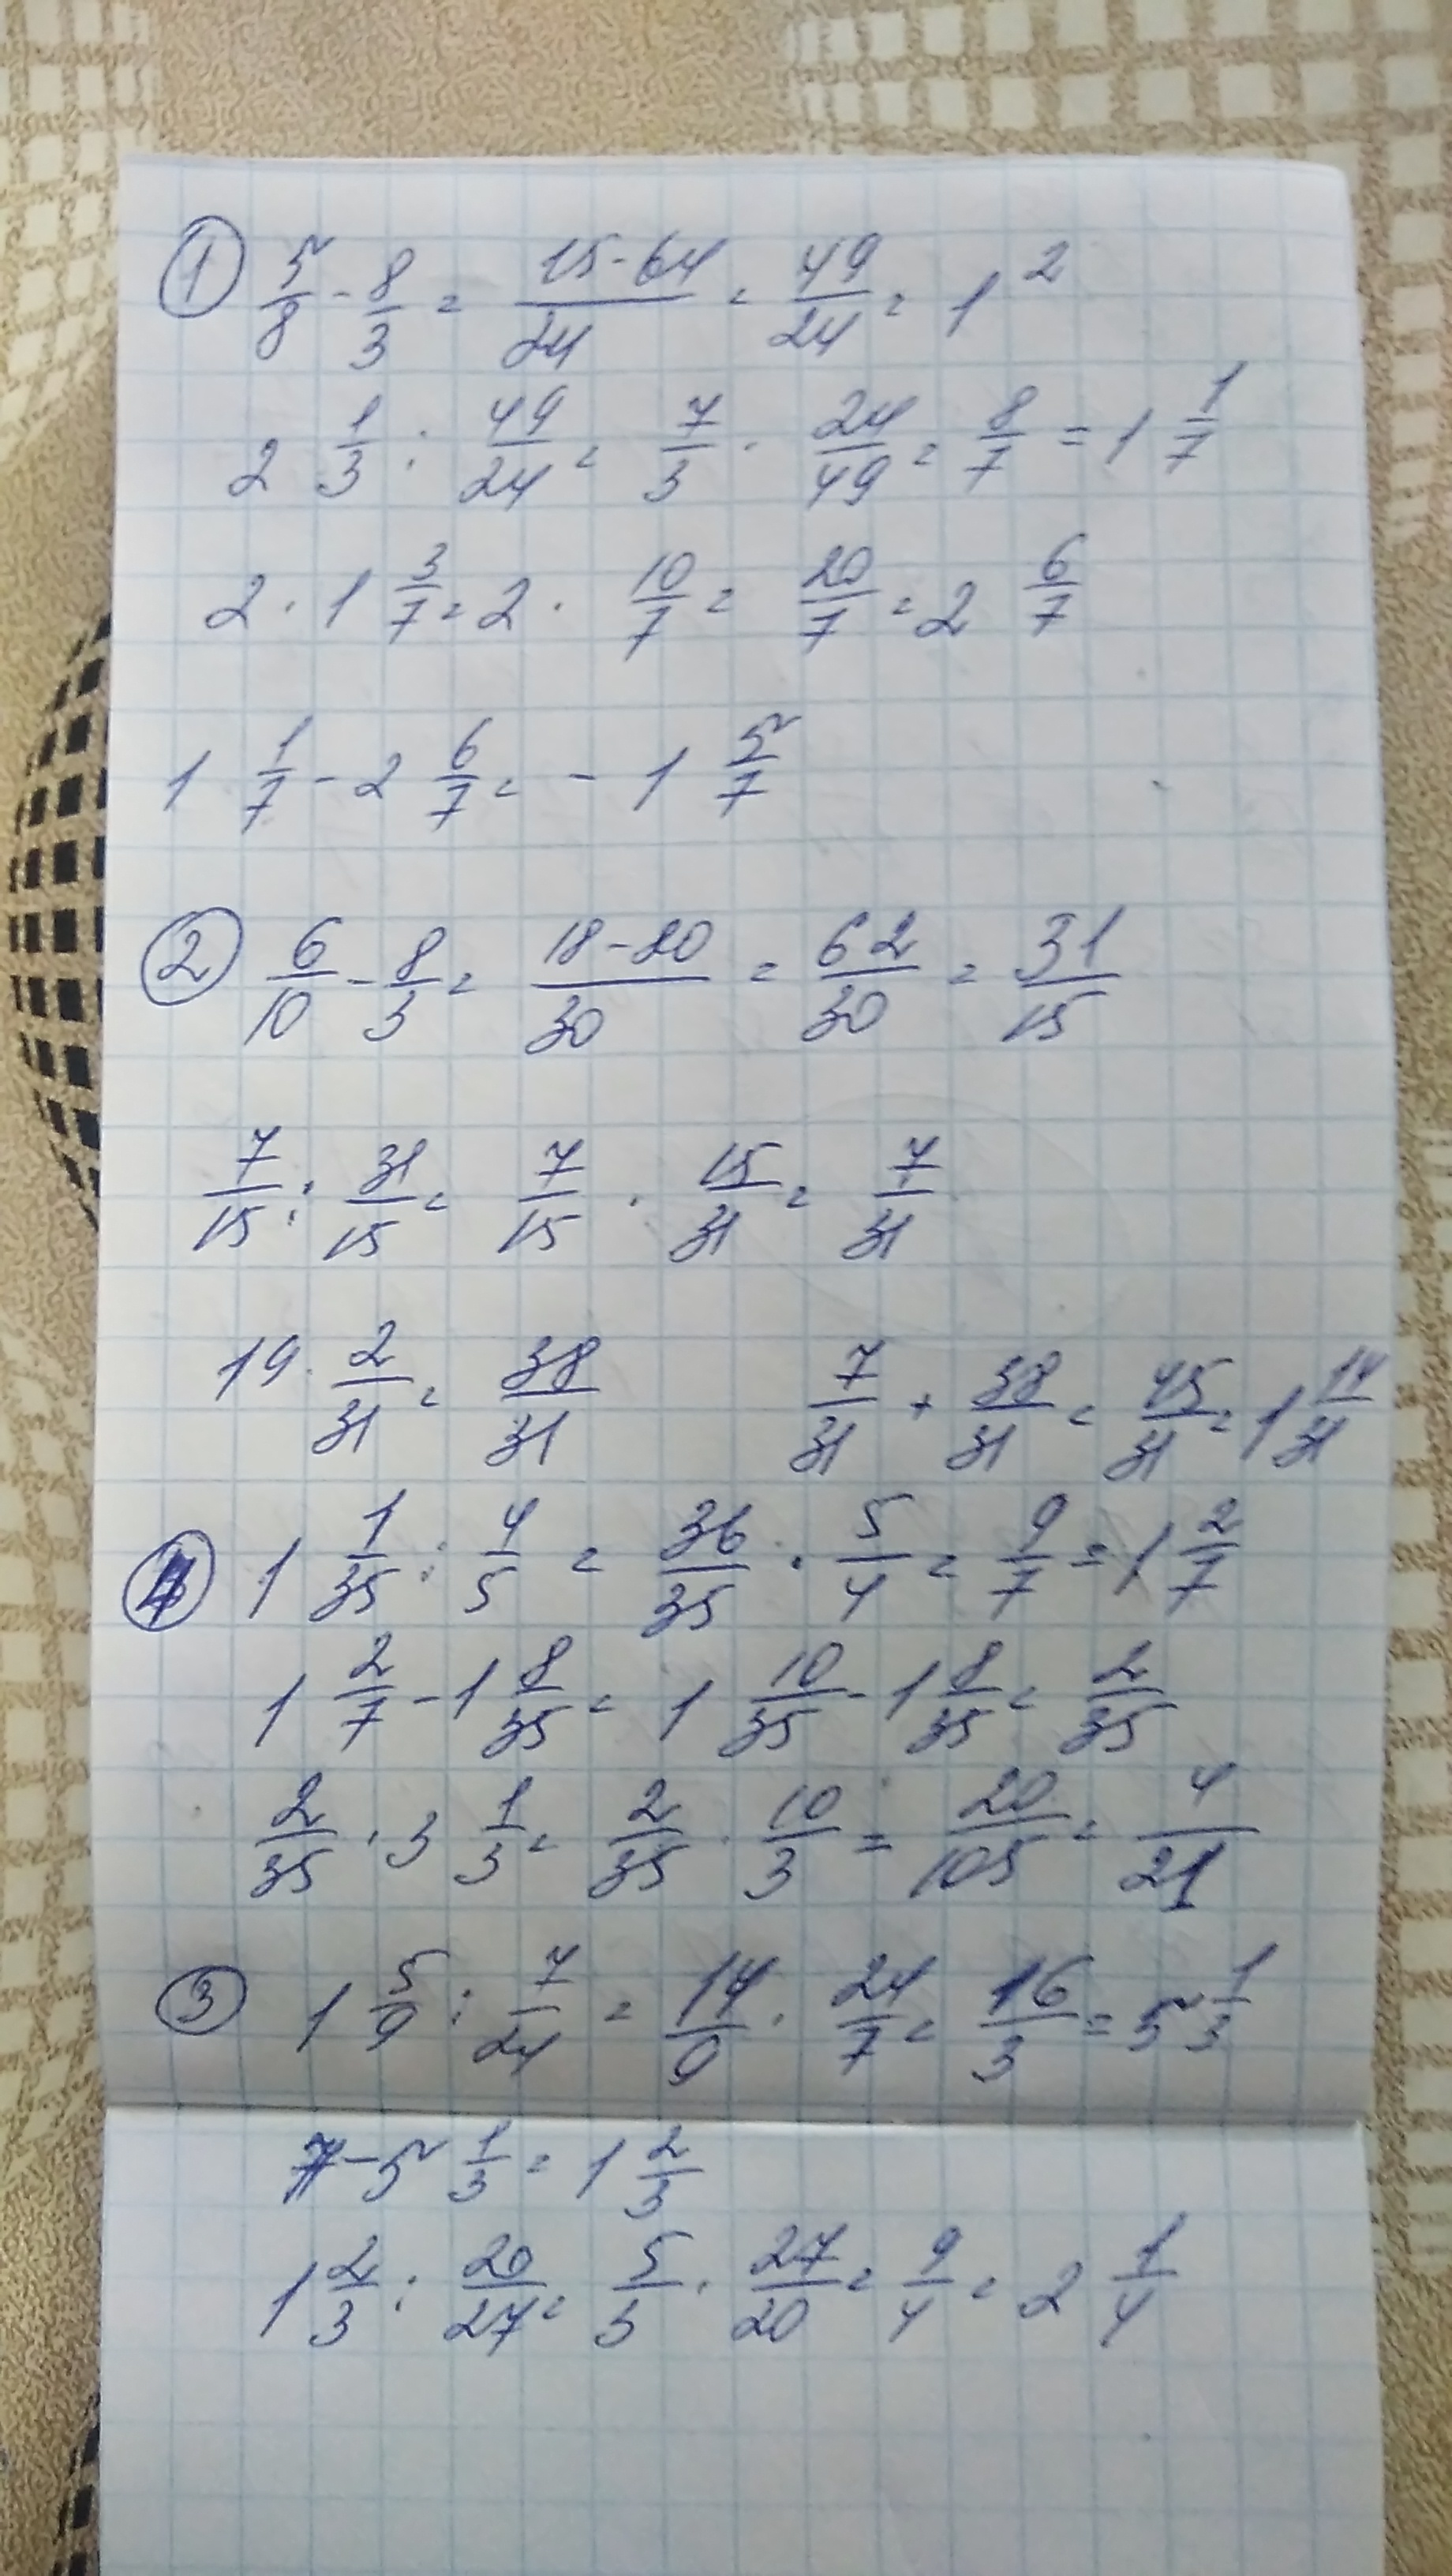 ① 5/8 - 8/3 = 15-64/24 = 49/24 = 1 2
2 1/3 : 49/24 = 7/3 · 24/49 = 8/7 = 1 1/7
2 · 1 3/7 = 2 · 10/7 = 20/7 = 2 6/7
1 1/7 - 2 6/7 = - 1 5/7
② 6/10 - 8/3 = 18-80/30 = 62/30 = 31/15
7/15 : 31/15 = 7/15 · 15/31 = 7/31
19 · 2/31 = 38/31 7/31 + 38/31 = 45/31 = 1 14/31
④ 1 1/35 : 4/5 = 36/35 · 5/4 = 9/7 = 1 2/7
1 2/7 - 1 8/35 = 1 10/35 - 1 8/35 = 2/35
2/35 · 3 1/3 = 2/35 · 10/3 = 20/105 = 4/21
③ 1 5/9 : 7/24 = 14/9 · 24/7 = 16/3 = 5 1/3
7 - 5 1/3 = 1 2/3
1 2/3 : 20/27 = 5/3 · 27/20 = 9/4 = 2 1/4